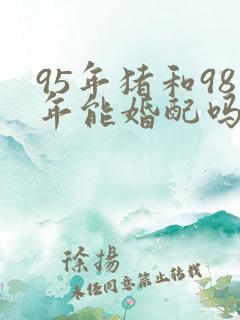 95年猪和98
年能婚配吗
徐扬
未经同意禁止转载